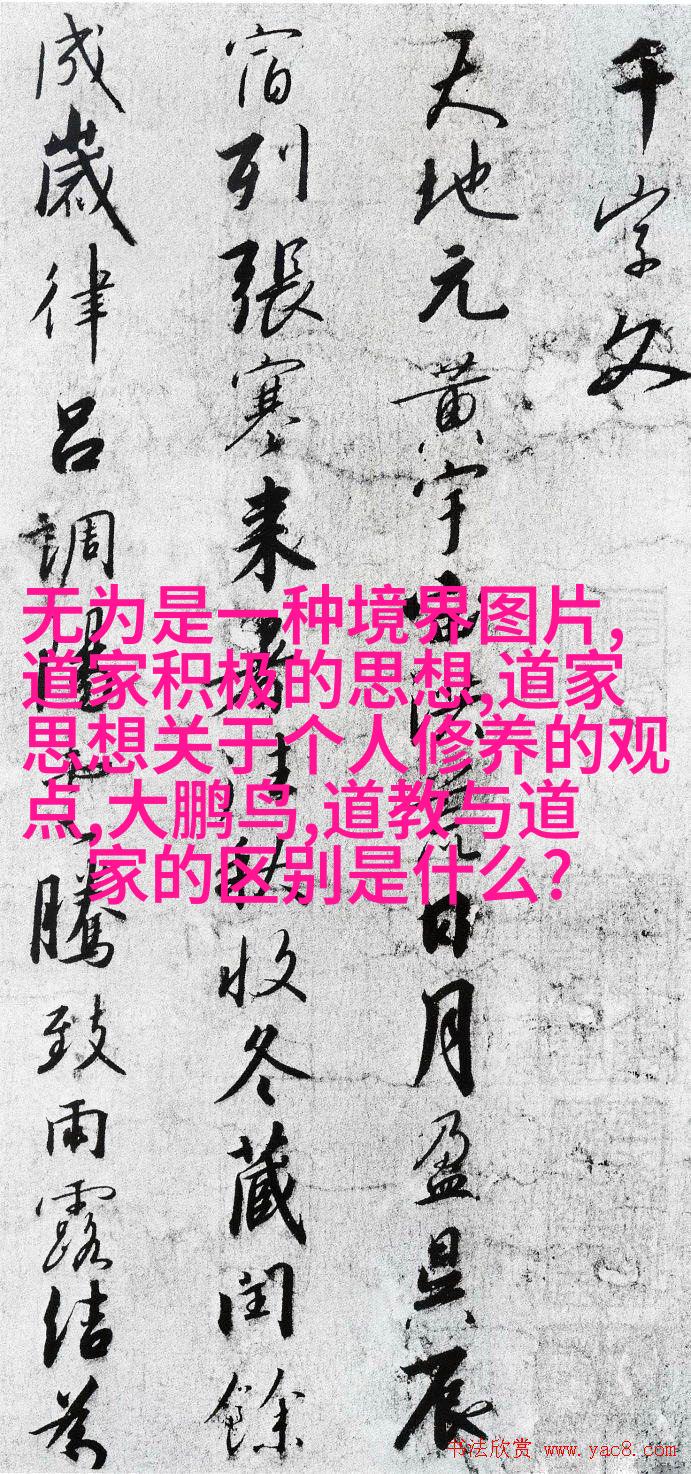 千字文
天地元黄宇宙洪荒日月盈昃辰
宿列張寒来暑往秋收冬蔵閏餘
成歳律吕調陽騰致雨露结為
无为是一种境界图片,
道家积极的思想,道家
思想关于个人修养的观
点,大鹏鸟,道教与道
家的区别是什么?
书法欣赏 www.yac8.com